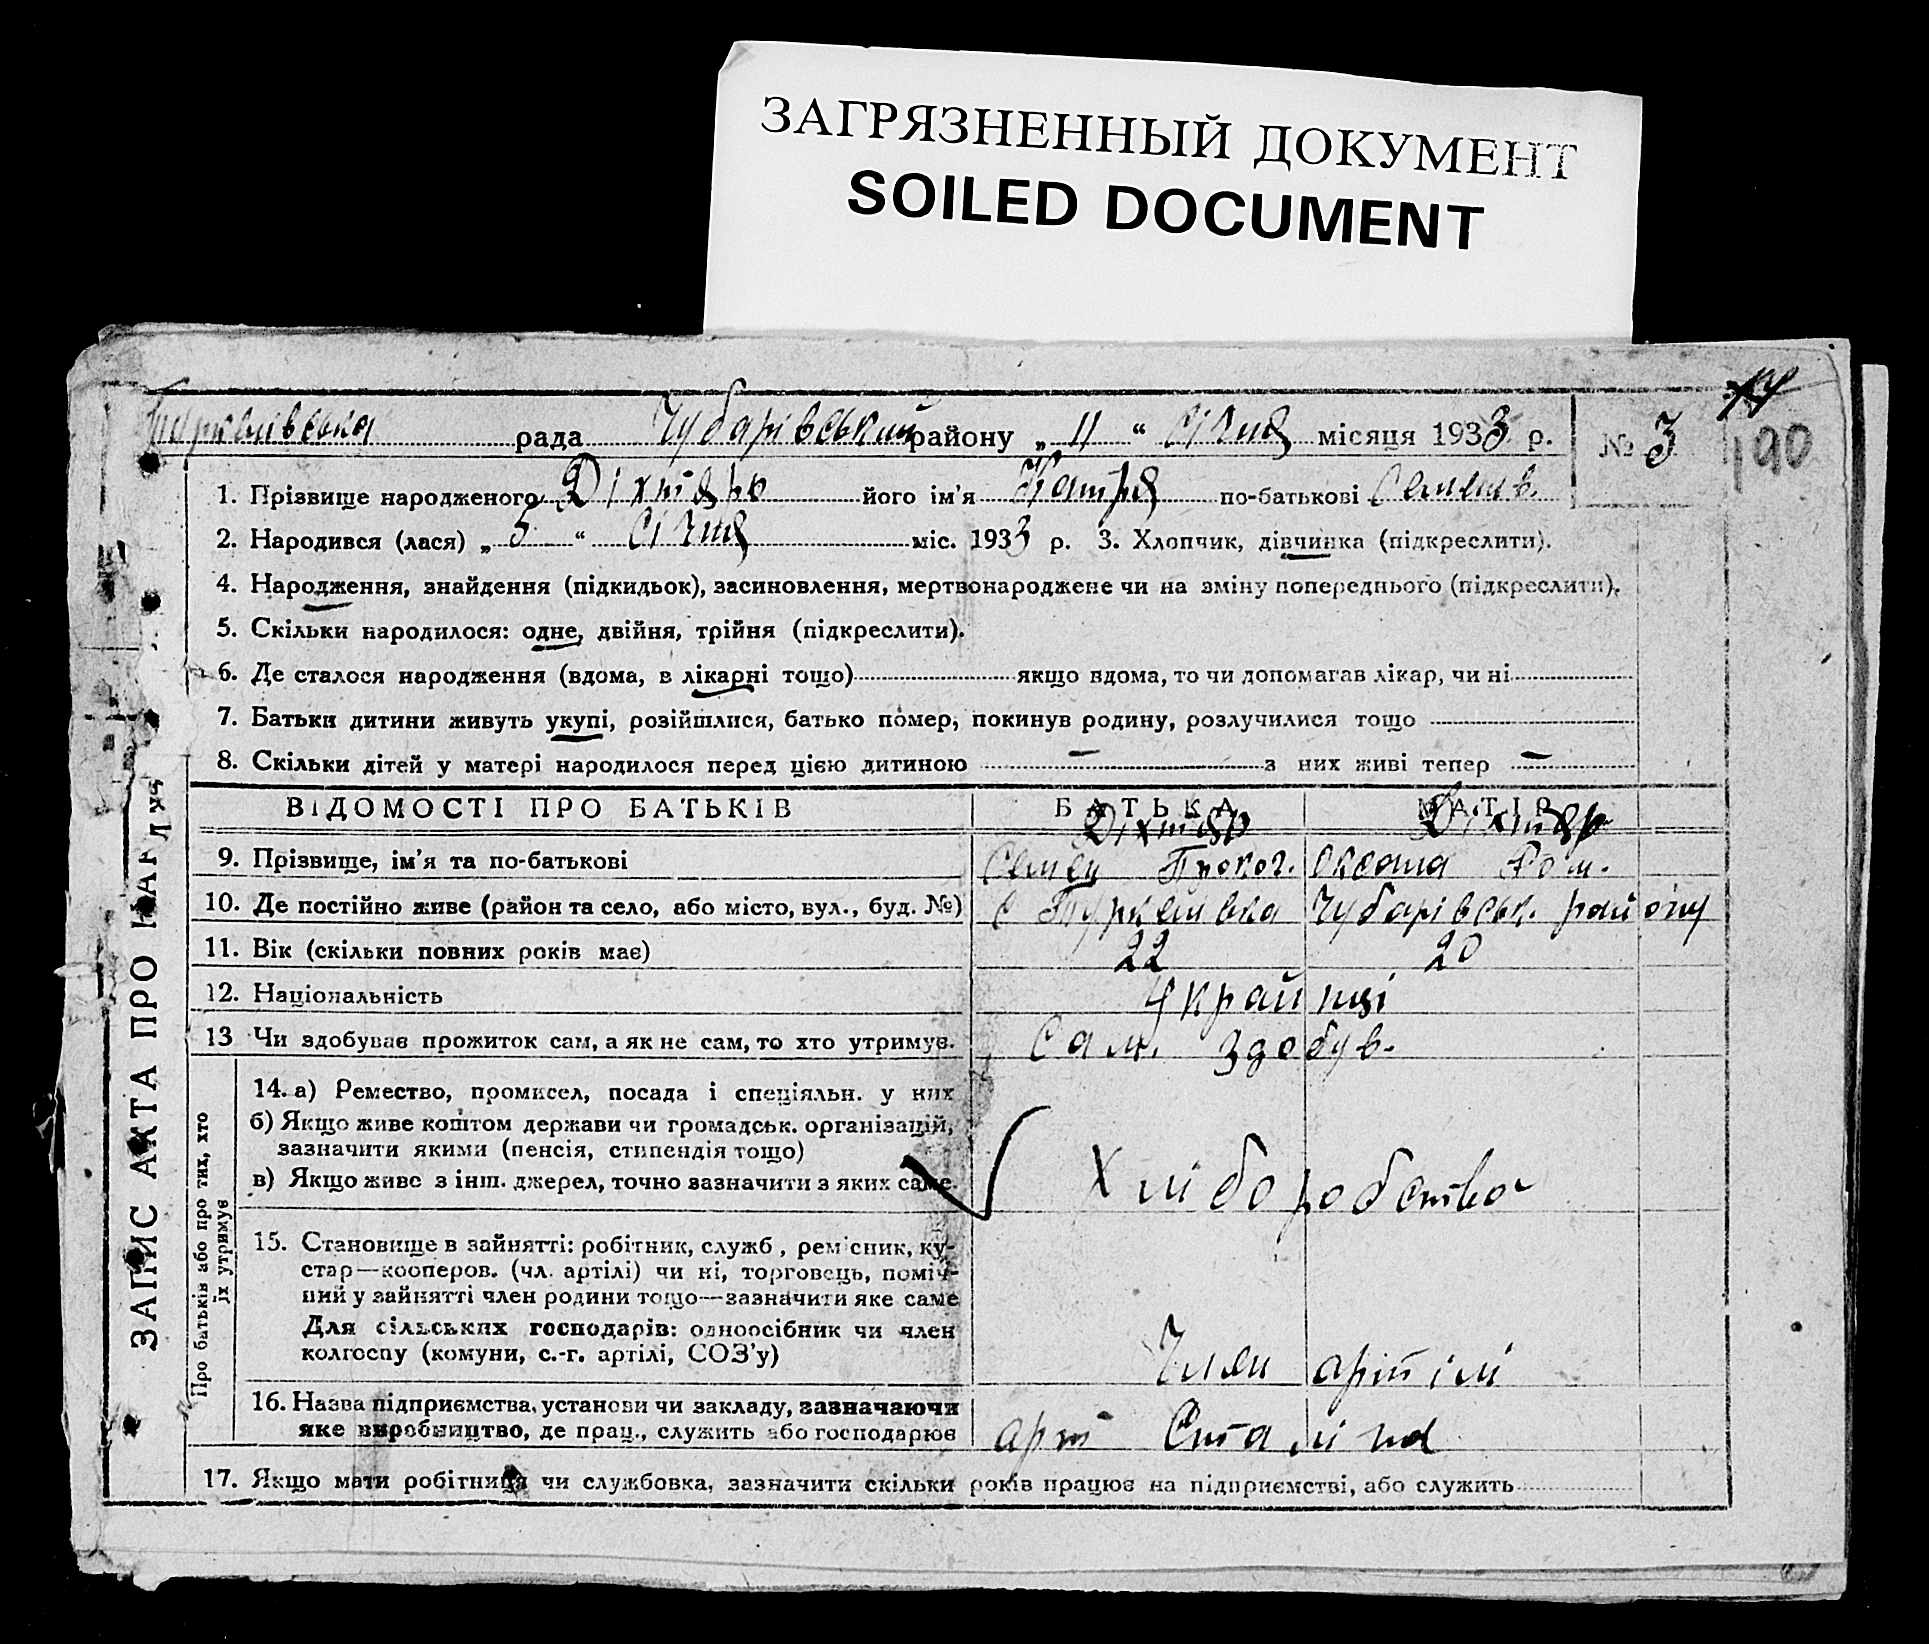 ЗАГРЯЗНЕННЫЙ ДОКУМЕНТ
SOILED DOCUMENT
190
рада Чубарівський району „ 11 “ Січня місяця 1933 р. № 3
1. Прізвище народженого Діхтярь його ім'я Катря по-батькові Семенів.
2. Народився (лася) „ 5 “ Січня міс. 1933 р. 3. Хлопчик, дівчинка (підкреслити).
4. Народження, знайдення (підкидьок), засиновлення, мертвонароджене чи на зміну попереднього (підкреслити).
5. Скільки народилося: одне, двійня, трійня (підкреслити).
6. Де сталося народження (вдома, в лікарні тощо) якщо вдома, то чи допомагав лікар, чи ні
7. Батьки дитини живуть укупі, розійшлися, батько помер, покинув родину, розлучилися тощо
8. Скільки дітей у матері народилося перед цією дитиною – з них живі тепер –
ВІДОМОСТІ ПРО БАТЬКІВ БАТЬКА МАТІР
Діхтяр Діхтяр
9. Прізвище, ім'я та по-батькові Семен Прокоп. Оксана
10. Де постійно живе (район та село, або місто, вул., буд. №) с Туркенівка Чубарівськ. району
11. Вік (скільки повних років має) 22 20
12. Національність Українці
13 Чи здобуває прожиток сам, а як не сам, то хто утримує. Сам. здобув.
14. а) Ремество, промисел, посада і спеціяльн. у них
б) Якщо живе коштом держави чи громадськ. організацій,
зазначити якими (пенсія, стипендія тощо)
в) Якщо живе з інш. джерел, точно зазначити з яких саме. Хліборобство
15. Становище в зайнятті: робітник, служб, ремісник, ку-
стар—кооперов. (чл. артілі) чи ні, торговець, поміч-
ний у зайнятті член родини тощо—зазначити яке саме
Для сільських господарів: одноосібник чи член
колгоспу (комуни, с.-г. артілі, СОЗ'у) Член артілі
16. Назва підприємства, установи чи закладу, зазначаючи
яке виробництво, де прац., служить або господарює арт Сталіна
17. Якщо мати робітниця чи службовка, зазначити скільки років працює на підприємстві, або служить
ЗАПИС АКТА ПРО
Про батьків або про тих, хто
їх утримує